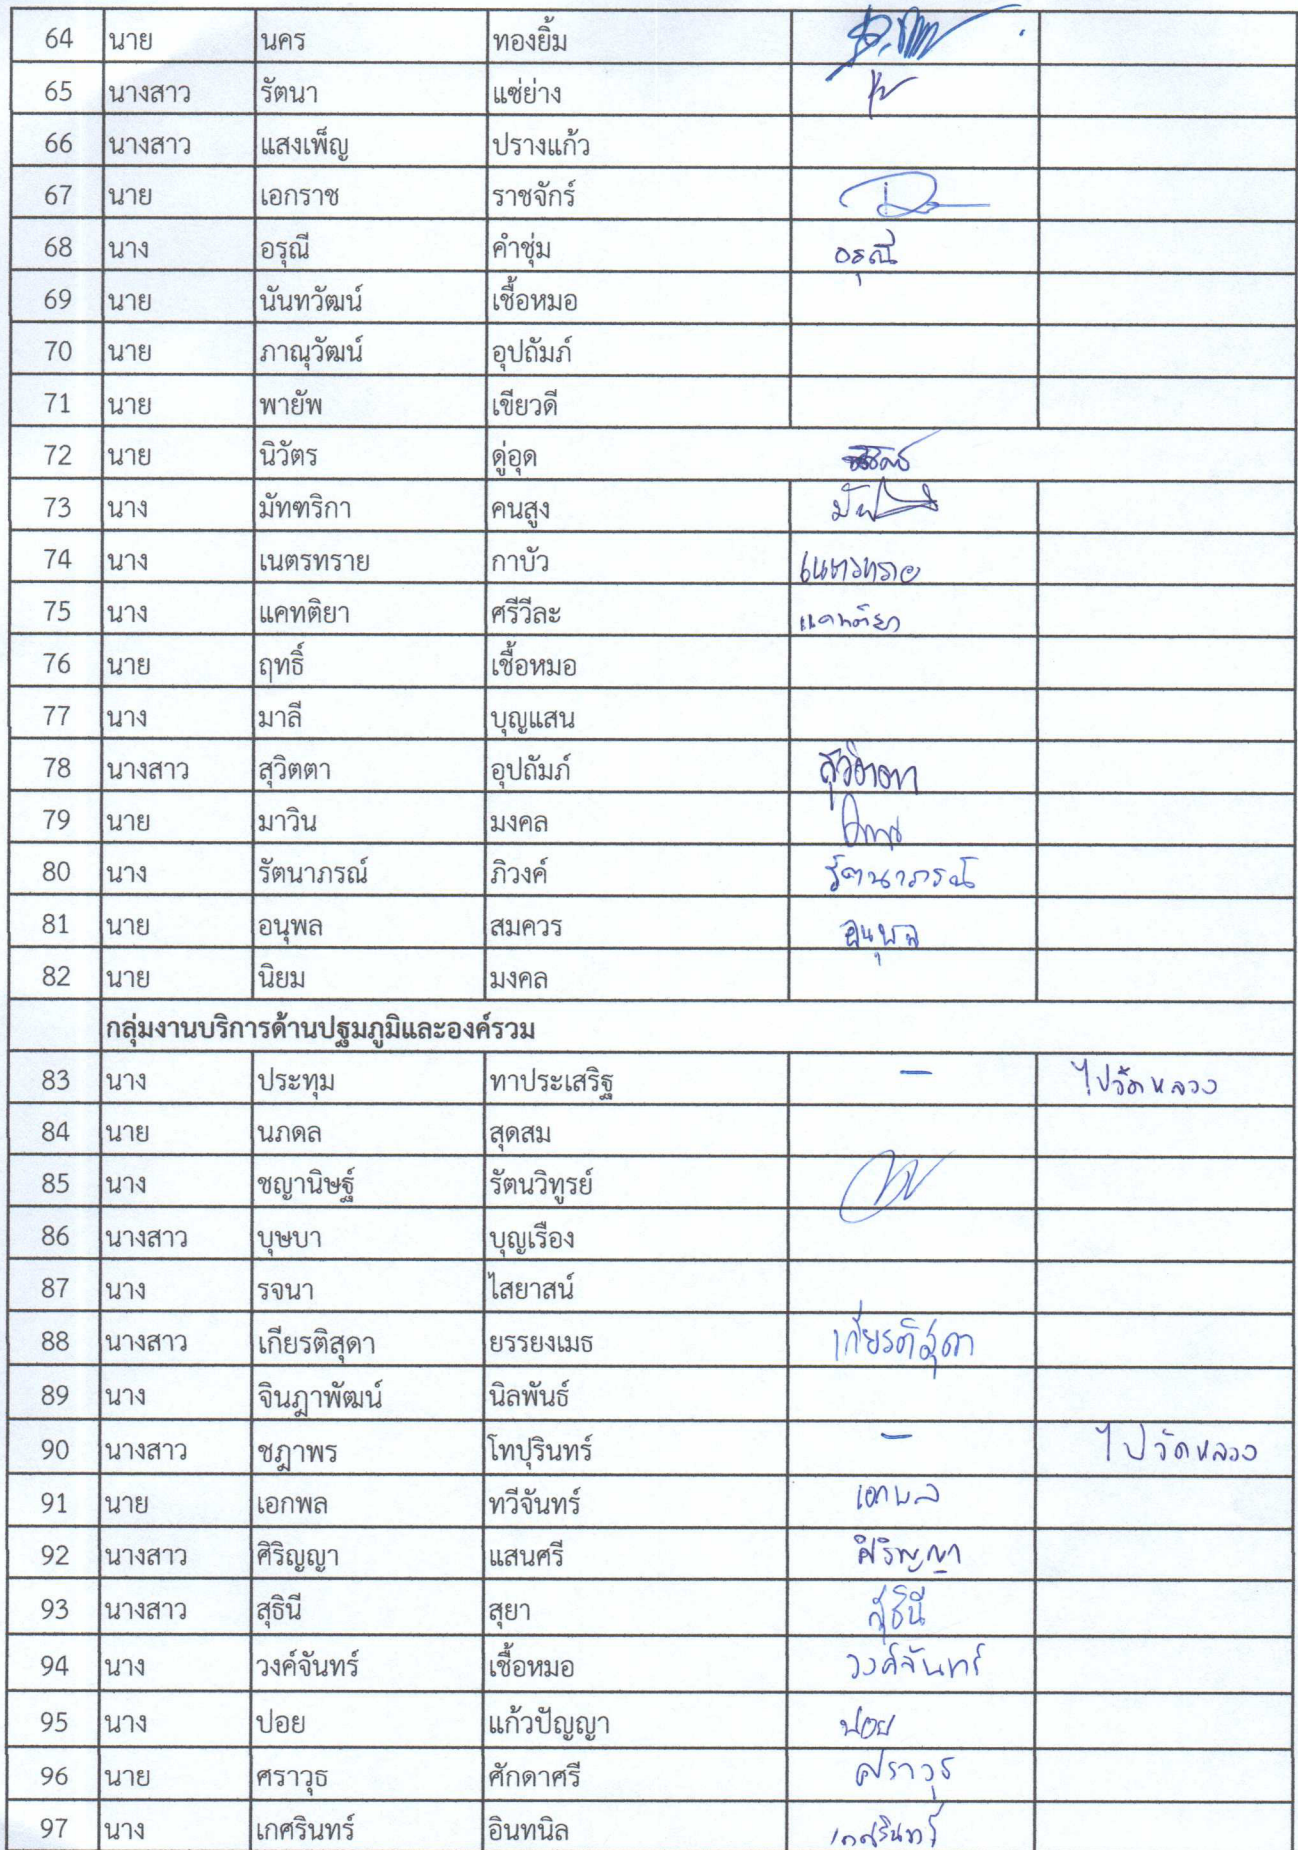 64 นาย นคร ทองยิ้ม
65 นางสาว รัตนา แซ่ย่าง
66 นางสาว แสงเพ็ญ ปรางแก้ว
67 นาย เอกราช ราชจักร์
68 นาง อรุณี คำชุ่ม อรุณี
69 นาย นันทวัฒน์ เชื้อหมอ
70 นาย ภาณุวัฒน์ อุปถัมภ์
71 นาย พายัพ เขียวดี
72 นาย นิวัตร ดู่อุด
73 นาง มัทฑริกา คนสูง
74 นาง เนตรทราย กาบัว เนตรทราย
75 นาง แคทติยา ศรีวีละ แคทติยา
76 นาย ฤทธิ์ เชื้อหมอ
77 นาง มาลี บุญแสน
78 นางสาว สุวิตตา อุปถัมภ์ สุวิตตา
79 นาย มาวิน มงคล
80 นาง รัตนาภรณ์ ภิวงค์ รัตนาภรณ์
81 นาย อนุพล สมควร อนุพล
82 นาย นิยม มงคล
กลุ่มงานบริการด้านปฐมภูมิและองค์รวม
83 นาง ประทุม ทาประเสริฐ - ไปวัดหลวง
84 นาย นภดล สุดสม
85 นาง ชญานิษฐ์ รัตนวิทูรย์
86 นางสาว บุษบา บุญเรือง
87 นาง รจนา ไสยาสน์
88 นางสาว เกียรติสุดา ยรรยงเมธ เกียรติสุดา
89 นาง จินฎาพัฒน์ นิลพันธ์
90 นางสาว ชฎาพร โทปุรินทร์ - ไปวัดหลวง
91 นาย เอกพล ทวีจันทร์ เอกพล
92 นางสาว ศิริญญา แสนศรี ศิริญญา
93 นางสาว สุธินี สุยา สุธินี
94 นาง วงค์จันทร์ เชื้อหมอ วงค์จันทร์
95 นาง ปอย แก้วปัญญา ปอย
96 นาย ศราวุธ ศักดาศรี ศราวุธ
97 นาง เกศรินทร์ อินทนิล เกศรินทร์